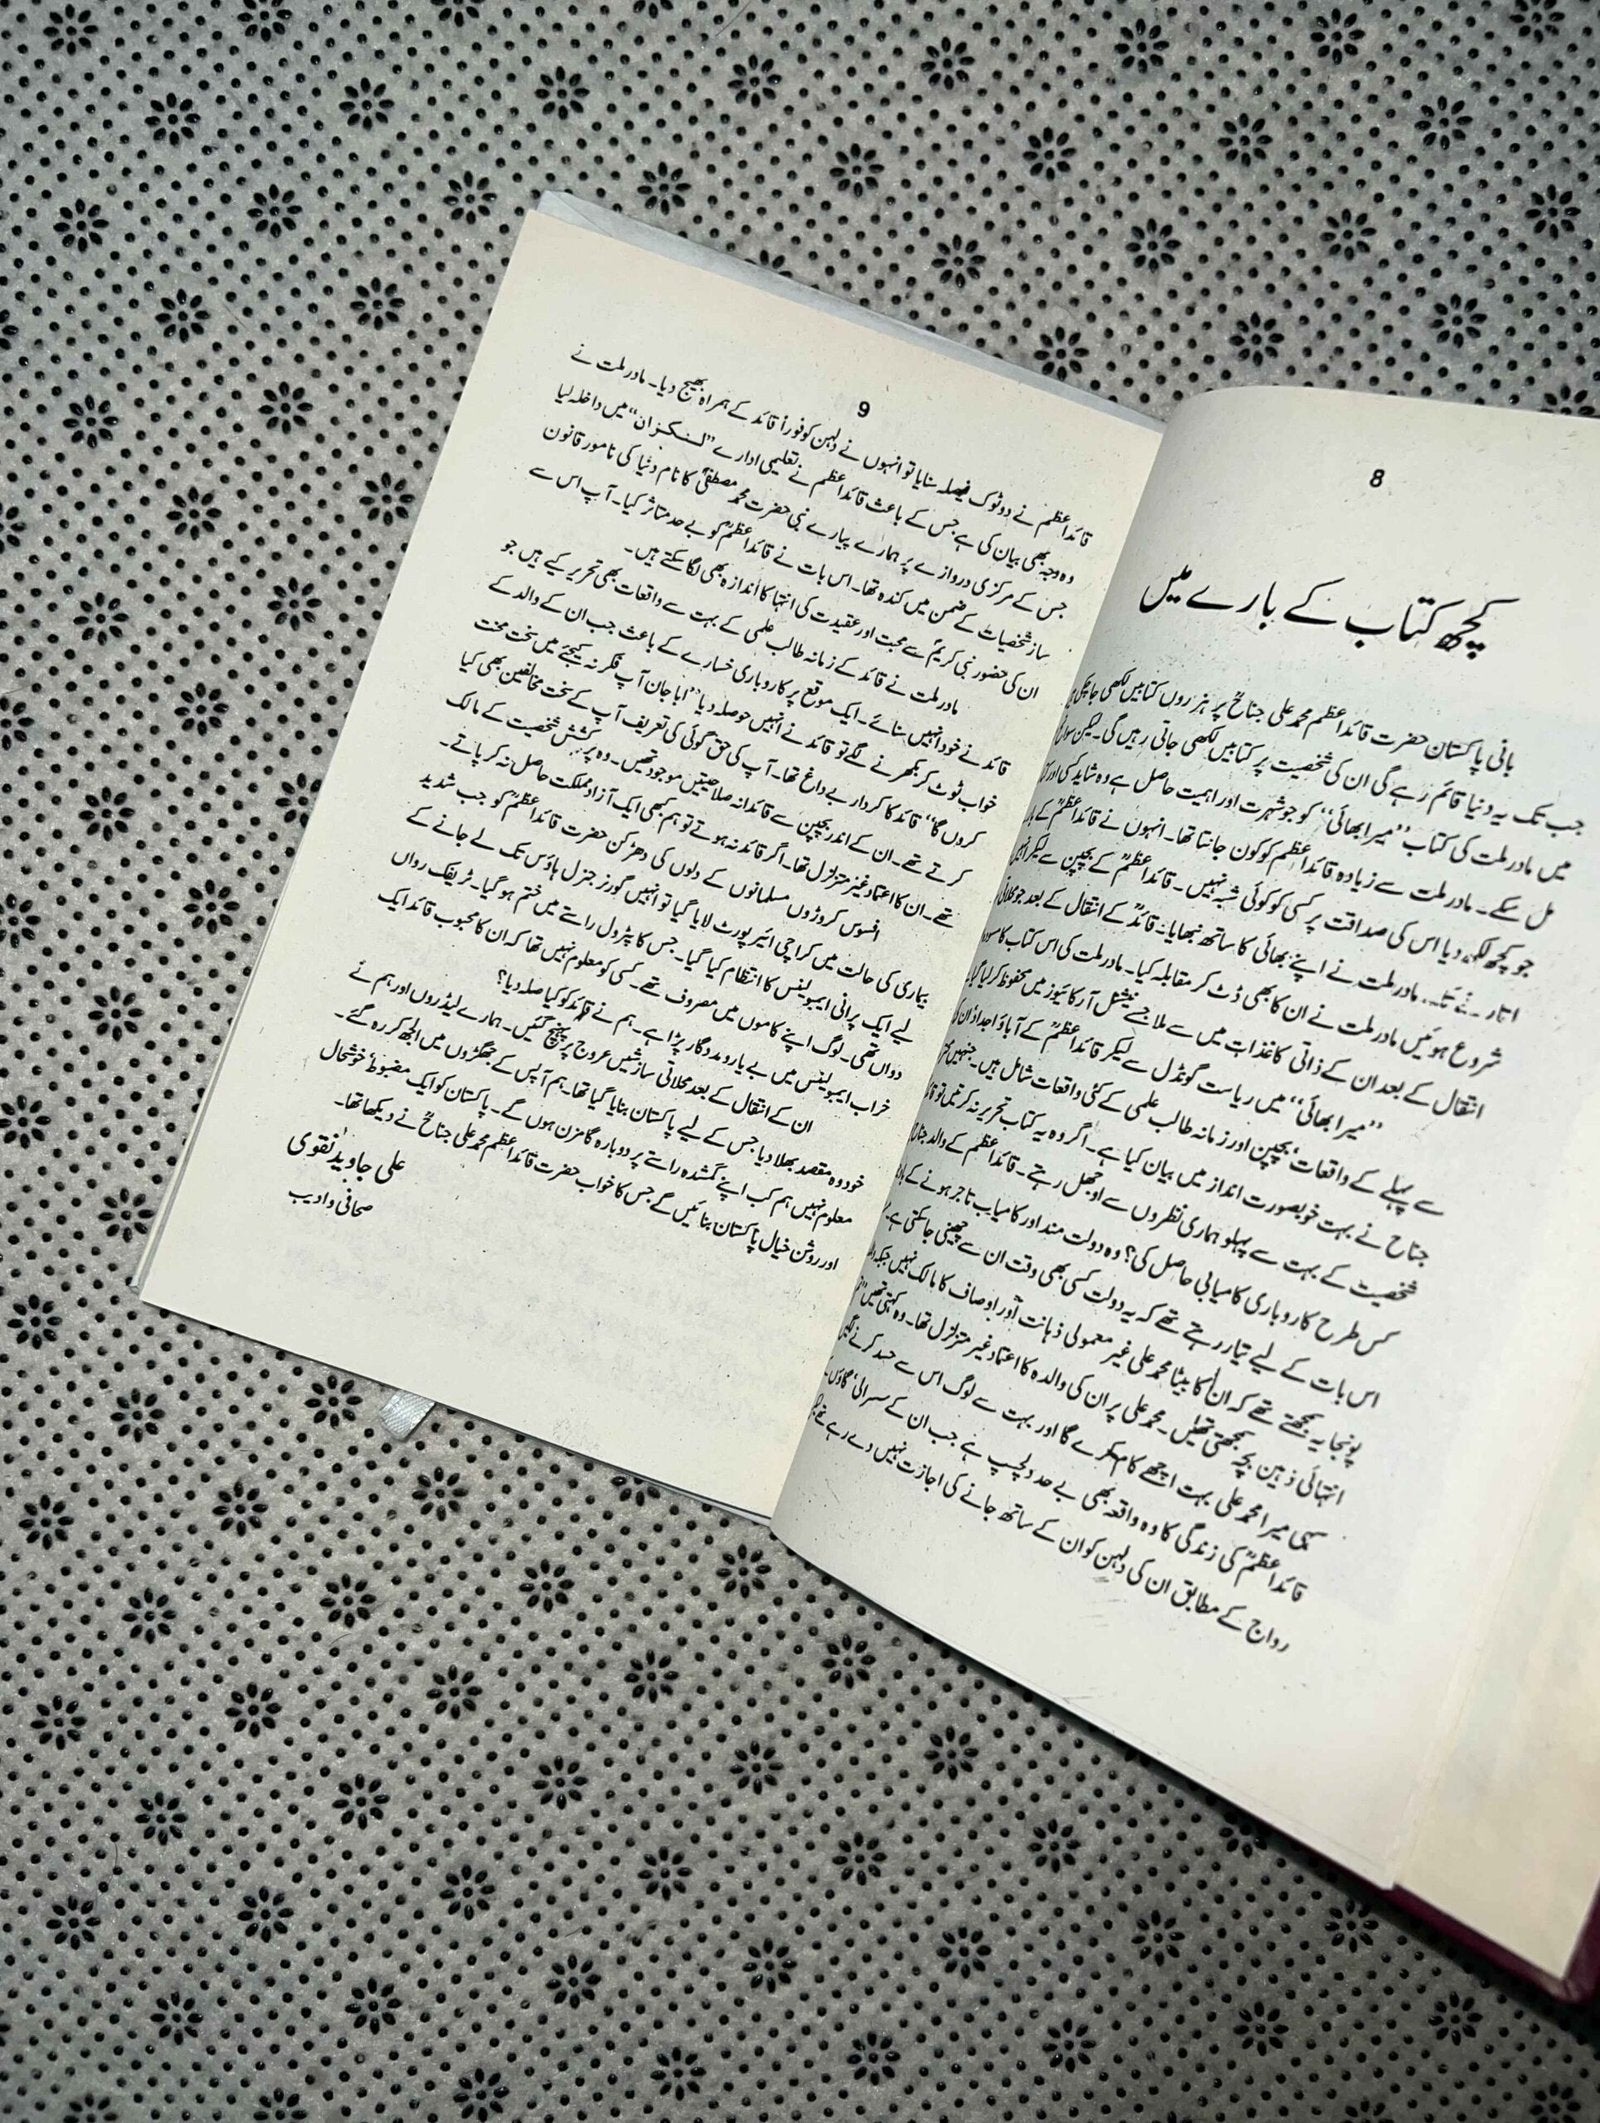 8
کچھ کتاب کے بارے میں
بانی پاکستان حضرت قائداعظم محمد علی جناحؒ پر ہزروں کتابیں لکھی جاچکی
جب تک یہ دنیا قائم رہے گی ان کی شخصیت پر کتابیں لکھی جاتی رہیں گی۔ لیکن
میں مادر ملت کی کتاب ”میرا بھائی“ کو جو شہرت اور اہمیت حاصل ہے وہ شاید کسی اور
مل سکے۔ مادر ملت سے زیادہ قائداعظم کو کون جانتا تھا۔ انہوں نے قائداعظمؒ کے
جو کچھ لکھ دیا اس کی صداقت پر کسی کو کوئی شبہ نہیں۔ قائداعظمؒ کے بچپن سے لیکر
مادر ملت نے اپنے بھائی کا ساتھ نبھایا۔ قائدؒ کے انتقال کے بعد جو
شروع ہوئیں مادر ملت نے ان کا بھی ڈٹ کر مقابلہ کیا۔ مادر ملت کی اس کتاب کا
انتقال کے بعد ان کے ذاتی کاغذات میں سے ملا جسے نیشنل آرکائیوز میں محفوظ کر لیا گیا
”میرا بھائی“ میں ریاست گونڈل سے لیکر قائداعظمؒ کے آباؤ اجداد
سے پہلے کے واقعات‘ بچپن اور زمانہ طالب علمی کے کئی واقعات شامل ہیں۔ جنہیں
جناح نے بہت خوبصورت انداز میں بیان کیا ہے۔ اگر وہ یہ کتاب تحریر نہ کرتیں تو
شخصیت کے بہت سے پہلو ہماری نظروں سے اوجھل رہتے۔ قائداعظم کے والد
کس طرح کاروباری کامیابی حاصل کی؟ وہ دولت مند اور کامیاب تاجر ہونے کے
اس بات کے لیے تیار رہتے تھے کہ یہ دولت کسی بھی وقت ان سے چھینی جاسکتی ہے
پونجا یہ سمجھتے تھے کہ ان کا بیٹا محمد علی غیر معمولی ذہانت اور اوصاف کا مالک نہیں جبکہ
انتہائی ذہین بچہ سمجھتی تھیں۔ محمد علی پر ان کی والدہ کا اعتماد غیر متزلزل تھا۔ وہ کہتی تھیں
سہی میرا محمد علی بہت اچھے کام کرے گا اور بہت سے لوگ اس سے حسد کرنے
قائداعظمؒ کی زندگی کا وہ واقعہ بھی بے حد دلچسپ ہے جب ان کے سسرالی‘ گاؤں
رواج کے مطابق ان کی دلہن کو ان کے ساتھ جانے کی اجازت نہیں دے رہے تھے
9
قائداعظم نے دوٹوک فیصلہ سنایا تو انہوں نے دلہن کو فوراً قائد کے ہمراہ بھیج دیا۔ مادر ملت نے
وہ وجہ بھی بیان کی ہے جس کے باعث قائداعظم نے تعلیمی ادارے ”لنکنزان“ میں داخلہ لیا
جس کے مرکزی دروازے پر ہمارے پیارے نبی حضرت محمد مصطفیٰؐ کا نام دنیا کی نامور قانون
ساز شخصیات کے ضمن میں کندہ تھا۔ اس بات نے قائداعظمؒ کو بے حد متاثر کیا۔ آپ اس سے
ان کی حضور نبی کریمؐ سے محبت اور عقیدت کی انتہا کا اندازہ بھی لگا سکتے ہیں۔
مادر ملت نے قائد کے زمانہ طالب علمی کے بہت سے واقعات بھی تحریر کیے ہیں جو
قائد نے خود انہیں سنائے۔ ایک موقع پر کاروباری خسارے کے باعث جب ان کے والد کے
خواب ٹوٹ کر بکھرنے لگے تو قائد نے انہیں حوصلہ دیا ”ابا جان آپ فکر نہ کیجئے میں سخت محنت
کروں گا“ قائد کا کردار بے داغ تھا۔ آپ کی حق گوئی کی تعریف آپ کے سخت مخالفین بھی کیا
کرتے تھے۔ ان کے اندر بچپن سے قائدانہ صلاحیتیں موجود تھیں۔ وہ پرکشش شخصیت کے مالک
تھے۔ ان کا اعتماد غیر متزلزل تھا۔ اگر قائد نہ ہوتے تو ہم کبھی ایک آزاد مملکت حاصل نہ کر پاتے۔
افسوس کروڑوں مسلمانوں کے دلوں کی دھڑکن حضرت قائداعظمؒ کو جب شدید
بیماری کی حالت میں کراچی ائیر پورٹ لایا گیا تو انہیں گورنر جنرل ہاؤس تک لے جانے کے
لیے ایک پرانی ایمبولینس کا انتظام کیا گیا۔ جس کا پٹرول راستے میں ختم ہو گیا۔ ٹریفک رواں
دواں تھی۔ لوگ اپنے کاموں میں مصروف تھے۔ کسی کو معلوم نہیں تھا کہ ان کا محبوب قائد ایک
خراب ایمبولینس میں بے یارومددگار پڑا ہے۔ ہم نے قائد کو کیا صلہ دیا؟
ان کے انتقال کے بعد محلاتی سازشیں عروج پر پہنچ گئیں۔ ہمارے لیڈروں اور ہم نے
خود وہ مقصد بھلا دیا جس کے لیے پاکستان بنایا گیا تھا۔ ہم آپس کے جھگڑوں میں الجھ کر رہ گئے۔
معلوم نہیں ہم کب اپنے گمشدہ راستے پر دوبارہ گامزن ہوں گے۔ پاکستان کو ایک مضبوط‘ خوشحال
اور روشن خیال پاکستان بنائیں گے جس کا خواب حضرت قائداعظم محمد علی جناحؒ نے دیکھا تھا۔
علی جاوید نقوی
صحافی و ادیب